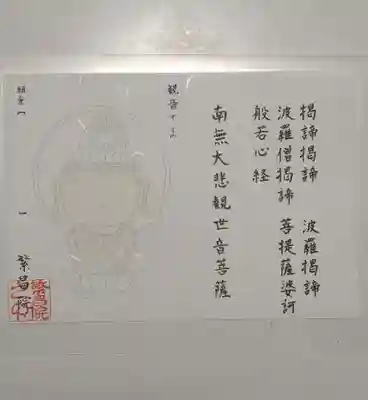 揭諦揭諦　波羅揭諦
波羅僧揭諦　菩提薩婆訶
般若心経
南無大悲観世音菩薩
観音さま
繁昌院